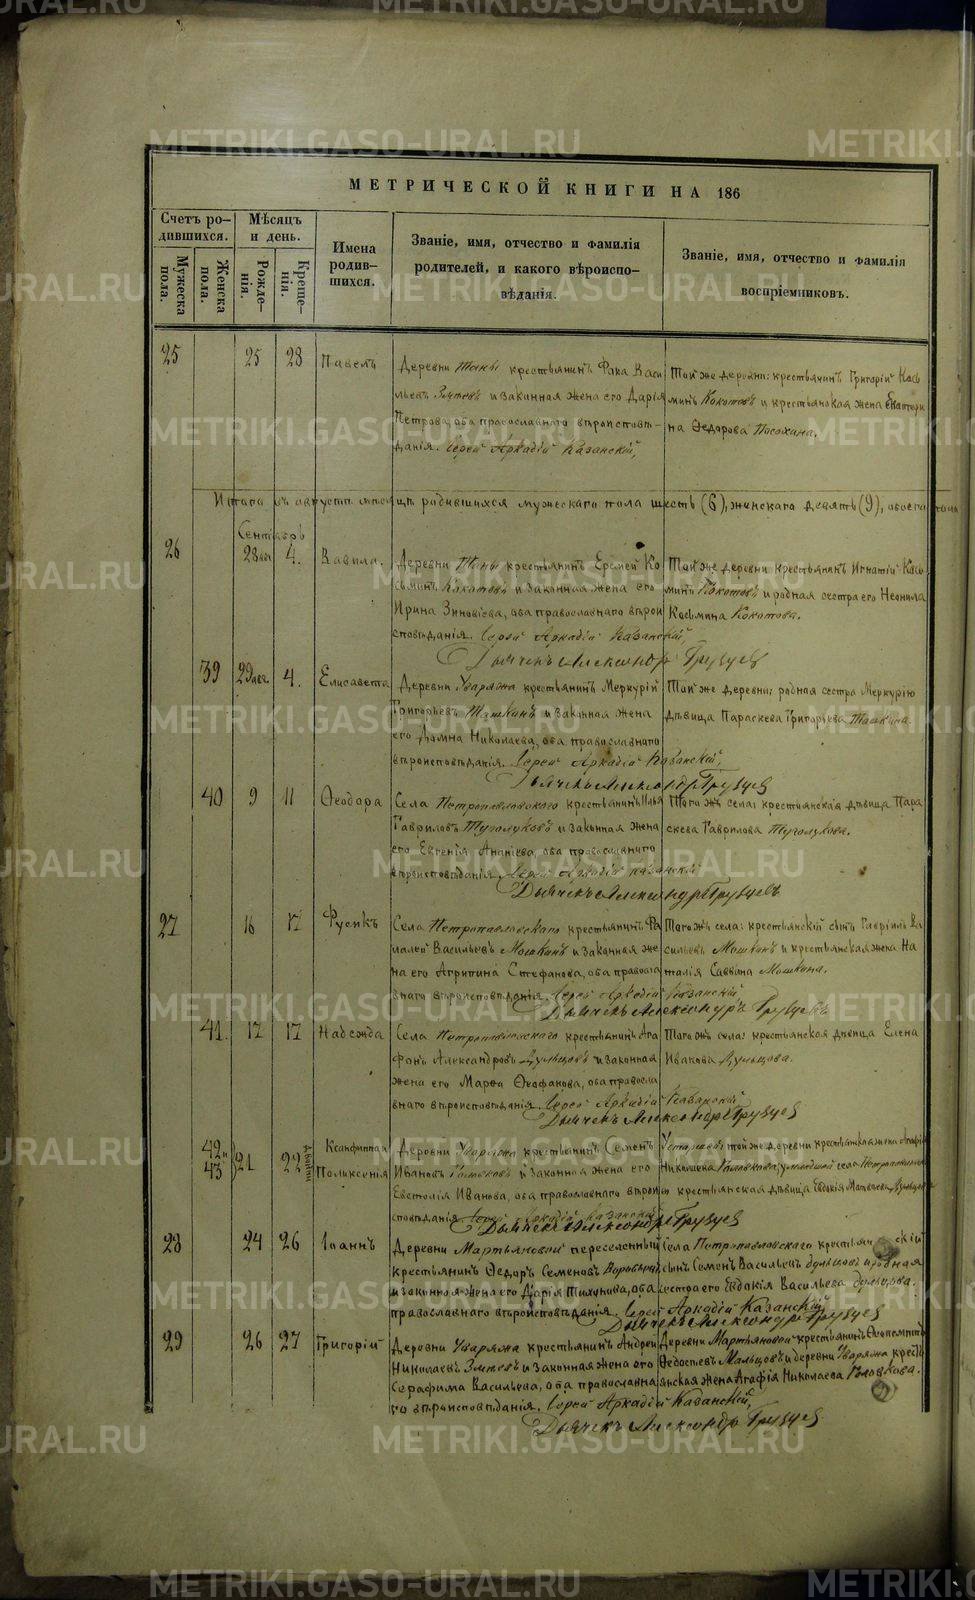 МЕТРИЧЕСКОЙ КНИГИ НА 186
Счетъ ро-
дившихся.
Мѣсяцъ
и день.
Мужеска
пола.
Женска
пола.
Рожде-
нія.
Креще-
нія.
Имена
родив-
шихся.
Званіе, имя, отчество и фамилія
родителей, и какого вѣроиспо-
вѣданія.
Званіе, имя, отчество и фамилія
воспріемниковъ.
25 25 28 Павелъ
Деревни крестьянинъ Фока Васи
льевъ Змѣевъ и законная жена его Дарія
Петрова, оба православнаго вѣроисповѣ-
данія. Іерей Аркадій Казанскій,
Той же деревни: крестьянинъ Григорій Кось
минъ Кокотовъ и крестьянская жена Екатери
на Ѳедорова Посохина.
Итого въ августѣ мѣсяцѣ родившихся мужескаго пола шесть (6), женскаго девять (9), обоего пола
Сентябрь
26 28 авг 4. Вавила.
Деревни крестьянинъ Еремей Ко
сьминъ Кокотовъ и законная жена его
Ирина Зиновіева, оба православнаго вѣрои
сповѣданія. Іерей Аркадій Казанскій,
Дьячекъ Александръ Грузцев
Той же деревни крестьянинъ Игнатій Кось
минъ Кокотовъ и родная сестра его Неонила
Косьмина Кокотова.
39 29 авг. 4. Елисавета
Деревни Уваряжа крестьянинъ Меркурій
Григорьевъ Тошкинъ и законная жена
его Домна Николаева, оба православнаго
вѣроисповѣданія. Іерей Аркадій Казанскій,
Дьячекъ Александръ Грузцев
Той же деревни; родная сестра Меркурію
дѣвица Параскева Григорьева Тошкина.
40 9 11 Ѳеодора
Села Петропавловскаго крестьянинъ Илья
Гавриловъ Туголуковъ и законная жена
его Евгенія Ананіева, оба православнаго
вѣроисповѣданія Іерей Аркадій Казанскій
Дьячекъ Александръ Грузцевъ
Того жъ села: крестьянская дѣвица Пара
скева Гаврилова Туголукова.
27 16 17 Фусикъ
Села Петропавловскаго крестьянинъ Фа
лалей Васильевъ Мошкинъ и законная же
на его Агрипина Стефанова, оба правосла
внаго вѣроисповѣданія. Іерей Аркадій Казанскій,
Дьячекъ Александръ Грузцевъ
Того жъ села: крестьянскій сынъ Гавріилъ Ва
сильевъ Мошкинъ и крестьянская жена На
талія Саввина Мошкина.
41. 17 17 Надежда
Села Петропавловскаго крестьянинъ Ага
фонъ Александровъ Дульцовъ и законная
жена его Марѳа Ѳеофанова, оба правосла
внаго вѣроисповѣданія. Іерей Аркадій Казанскій
Дьячекъ Александръ Грузцев
Того жъ села: крестьянская дѣвица Елена
Иванова Дульцова.
42 и
43 21 22 двойни
Ксанфиппа
Поликсенія
Деревни Уваряжа крестьянинъ Семенъ
Ивановъ и законная жена его
Евстолія Иванова, оба православнаго вѣрои
сповѣданія Іерей Аркадій Казанскій
Дьячекъ Александръ Грузцев
той же деревни крестьянская жена Агафія
Николаева Головкова, села Петропавловскаго
крестьянская дѣвица Евдокія Матвеева Дульцова
28 24 26 Іоаннъ
Деревни Мартьяновой переселенный
крестьянинъ Ѳедоръ Семеновъ Воробьевъ
и законная жена его Дарія Тихонова, оба
православнаго вѣроисповѣданія. Іерей Аркадій Казанскій
Дьячекъ Александръ Грузцев
Села Петропавловскаго крестьянскій
сынъ Семенъ Васильевъ Дульцовъ и родная
сестра его Евдокія Васильева Дульцова.
29 26 27 Григорій
Деревни Уваряжа крестьянинъ Андрей
Николаевъ Змѣевъ и законная жена его
Серафима Васильева, оба православна
го вѣроисповѣданія. Іерей Аркадій Казанскій,
Дьячекъ Александръ Грузцев
Деревни Мартьяновой крестьянинъ Ѳеопемптъ
Ѳедосѣевъ Мальцовъ и деревни Уваряжа кресть
янская жена Агафія Николаева Головкова.
METRIKI.GASO-URAL.RU